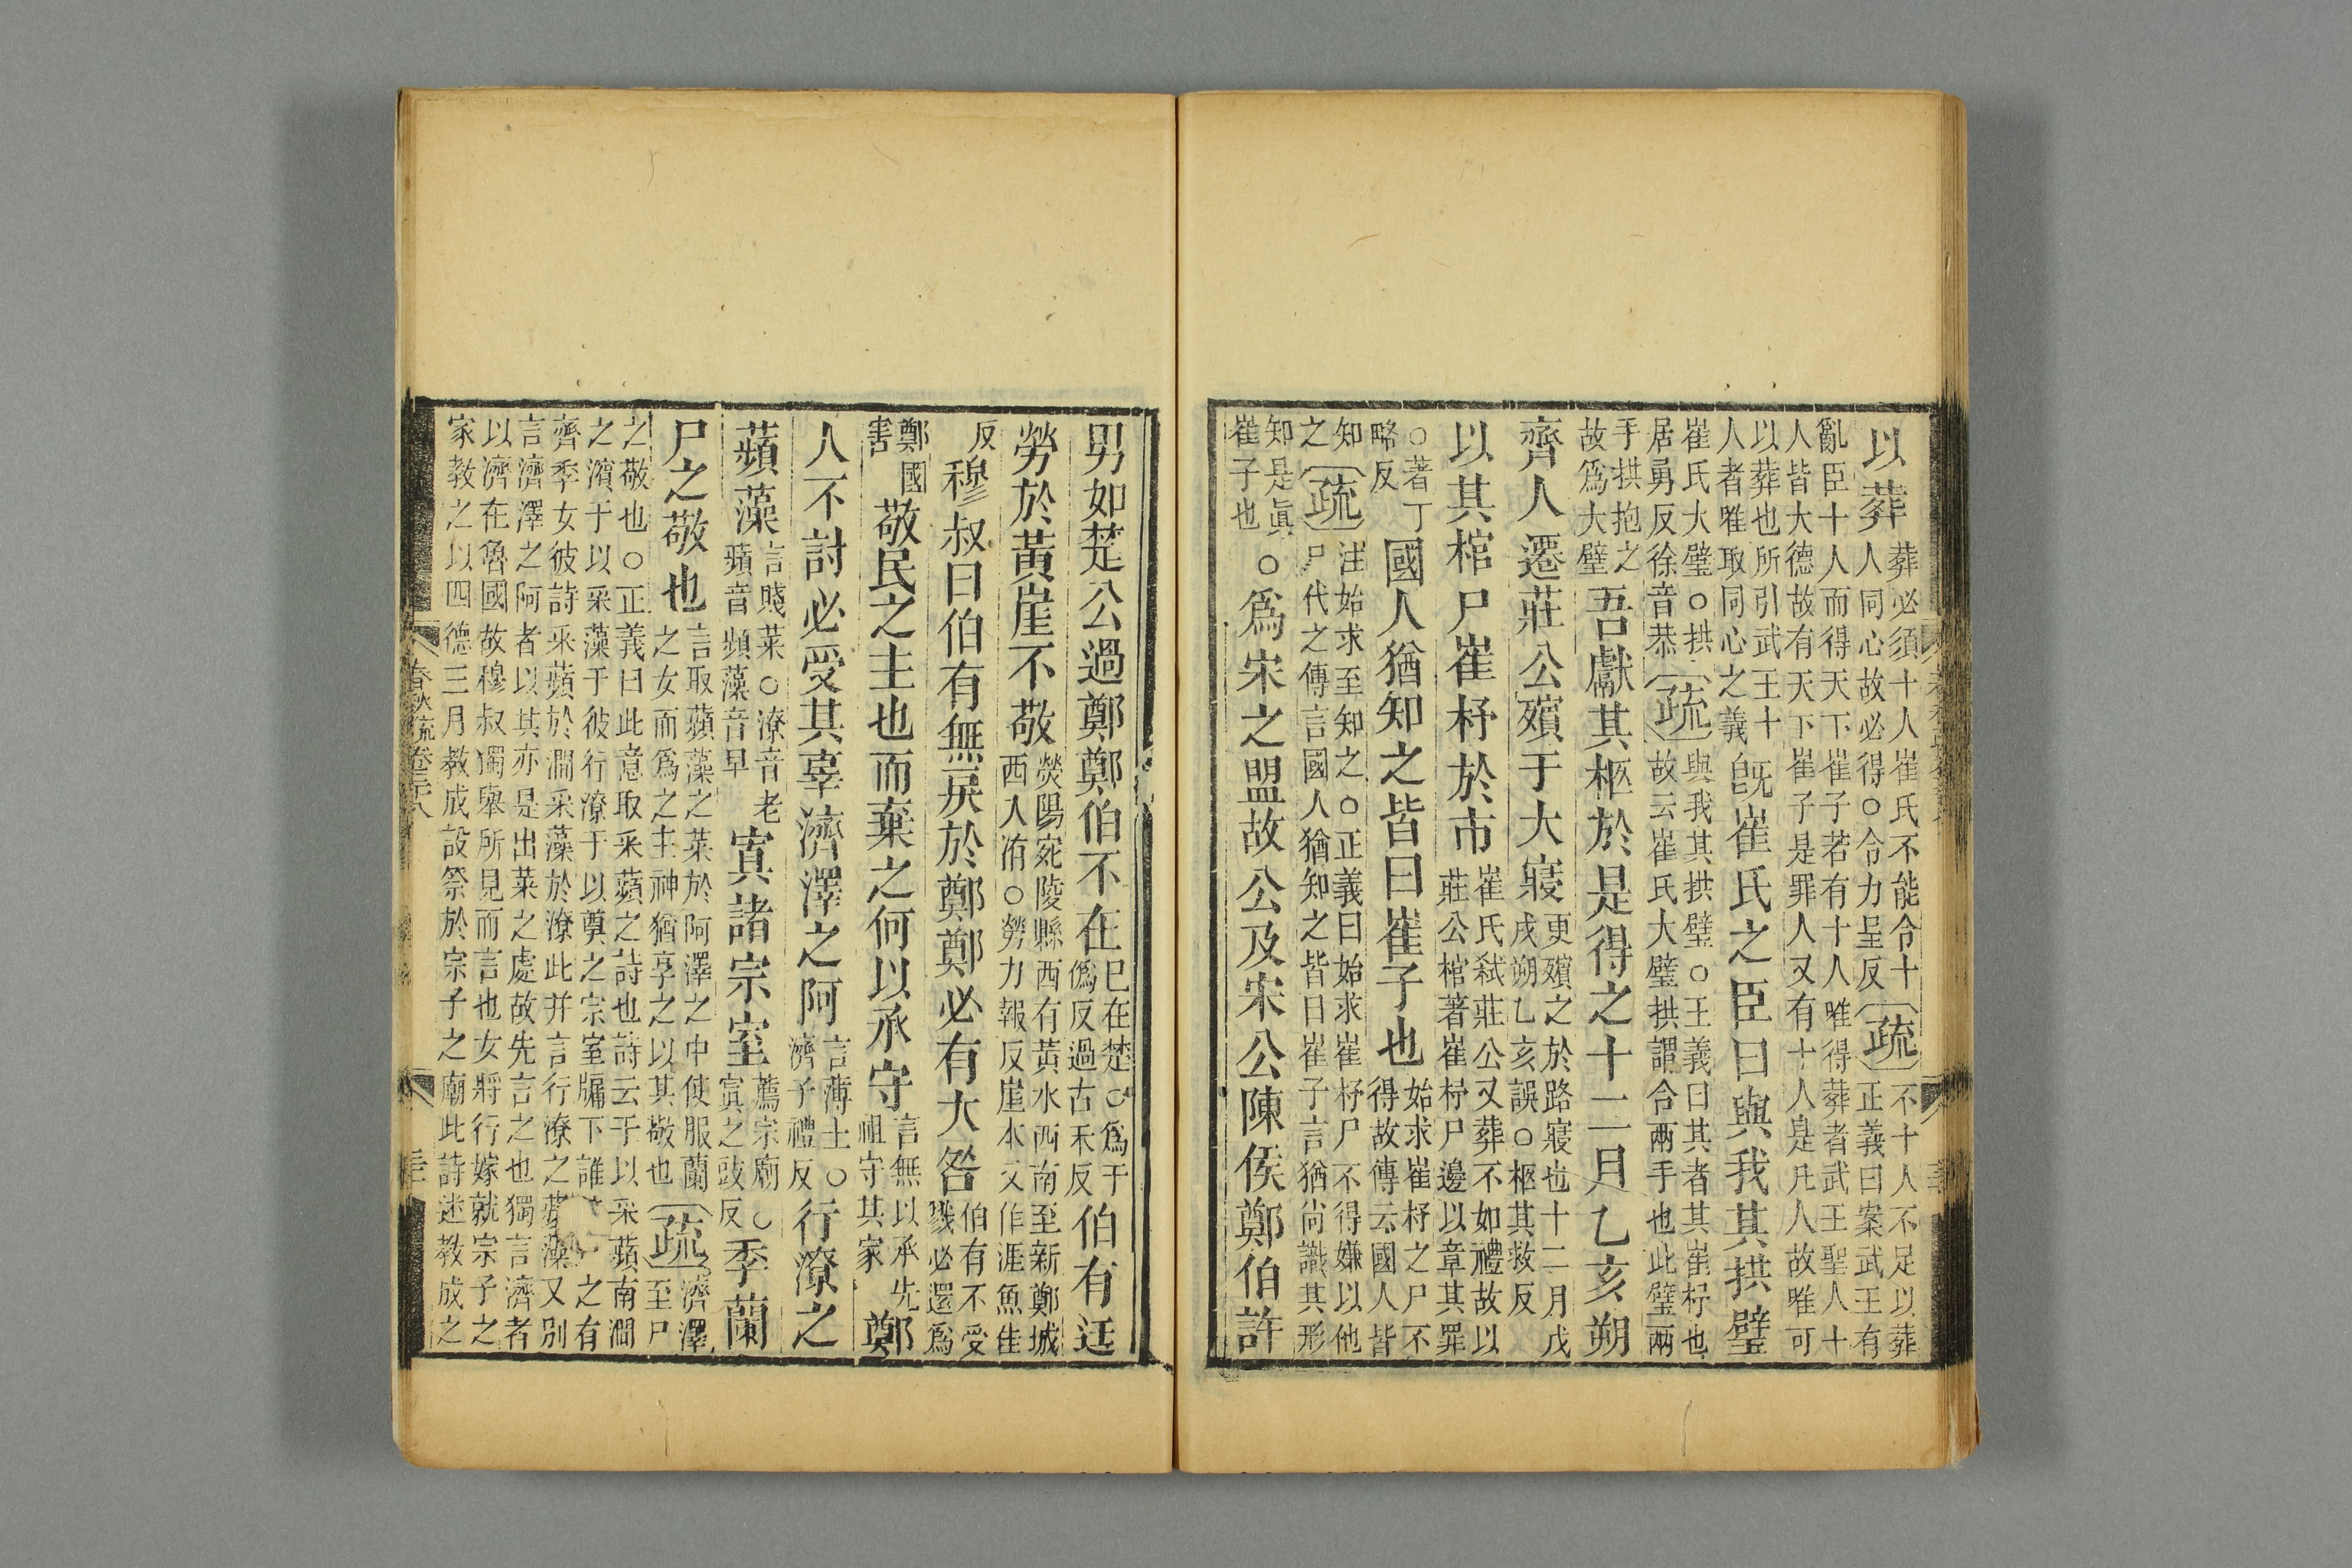 以葬葬必須十人崔氏不能令十人同心故必得○令力呈反疏不十人不足以葬正義曰案武王有
亂臣十人而得天下崔子若有十人唯得葬者武王聖人十人皆大德故有天下崔子是罪人又有十人是凡人故唯可
以葬也所引武王十人者唯取同心之義既崔氏之臣曰與我其拱璧
崔氏大璧○拱居勇反徐音恭疏與我其拱璧○正義曰其者其崔杼也故云崔氏大璧拱謂合兩手也此璧兩
手拱抱之故爲大璧吾獻其柩於是得之十二月乙亥朔
齊人遷莊公殯于大寢更殯之於路寢也十二月戊戌朔乙亥誤○柩其救反
以其棺尸崔杼於市崔氏弒莊公又葬不如禮故以莊公棺著崔杼尸邊以章其罪
○著丁略反國人猶知之皆曰崔子也始求崔杼之尸不得故傳云國人皆
知之疏注始求至知之○正義曰始求崔杼尸不得嫌以他尸代之傳言國人猶知之皆曰崔子言猶尚識其形
知是眞崔子也○爲宋之盟故公及宋公陳侯鄭伯許
男如楚公過鄭鄭伯不在已在楚○爲于僞反過古禾反伯有廷
勞於黃崖不敬熒陽宛陵縣西有黃水西南至新鄭城西入洧○勞力報反崖本又作涯魚佳
反穆叔曰伯有無戾於鄭鄭必有大咎伯有不受戮必還爲
鄭國害敬民之主也而棄之何以承守言無以承先祖守其家鄭
人不討必受其辜濟澤之阿言薄土○濟子禮反行潦之
蘋藻言賤菜○潦音老蘋音頻藻音早寘諸宗室薦宗廟○寘之豉反季蘭
尸之敬也言取蘋藻之菜於阿澤之中使服蘭之女而爲之主神猶享之以其敬也疏濟澤至尸
之敬也○正義曰此意取采蘋之詩也詩云于以采蘋南澗之濱于以采藻于彼行潦于以奠之宗室牖下誰之有
齊季女彼詩采蘋於澗采藻於潦此并言行潦之蘋藻又別言濟澤之阿者以其亦是出菜之處故先言之也獨言濟者
以濟在魯國故穆叔獨舉所見而言也女將行嫁就宗子之家教之以四德三月教成設祭於宗子之廟此詩述教成之
春秋疏卷三十八